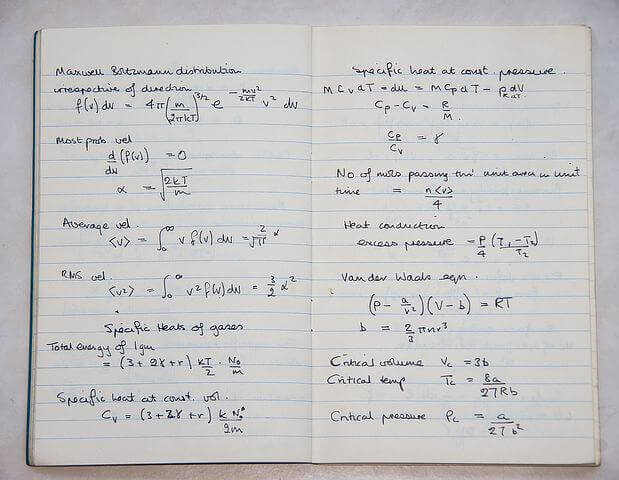 Maxwell Boltzmann distribution
irrespective of direction
f(v) dv = 4π(m/2πkT)^3/2 e^-mv²/2kT v² dv
Most prob. vel
d/dv (f(v)) = 0
α = √(2kT/m)
Average vel.
<v> = ∫₀^∞ v f(v) dv = 2/√π α
RMS vel.
<v²> = ∫₀^∞ v² f(v) dv = 3/2 α²
Specific Heats of gases
Total energy of 1gm
= (3 + 2γ + r) kT/2 · N₀/m
Specific heat at const. vol.
Cv = (3 + 2γ + r) k N₀/2m
Specific heat at const. pressure.
M Cv dT = du = M Cp dT - p dV
R dT
Cp - Cv = R/M.
Cp/Cv = γ
No of mols passing thro' unit area in unit
time = n<v>/4
Heat conduction
excess pressure = P/4 (T₁ - T₂)/T₂
Van der Waals eqn.
(P - a/v²)(V - b) = RT
b = 2/3 πnr³
Critical volume Vc = 3b
Critical temp Tc = 8a/27Rb
Critical pressure Pc = a/27b²